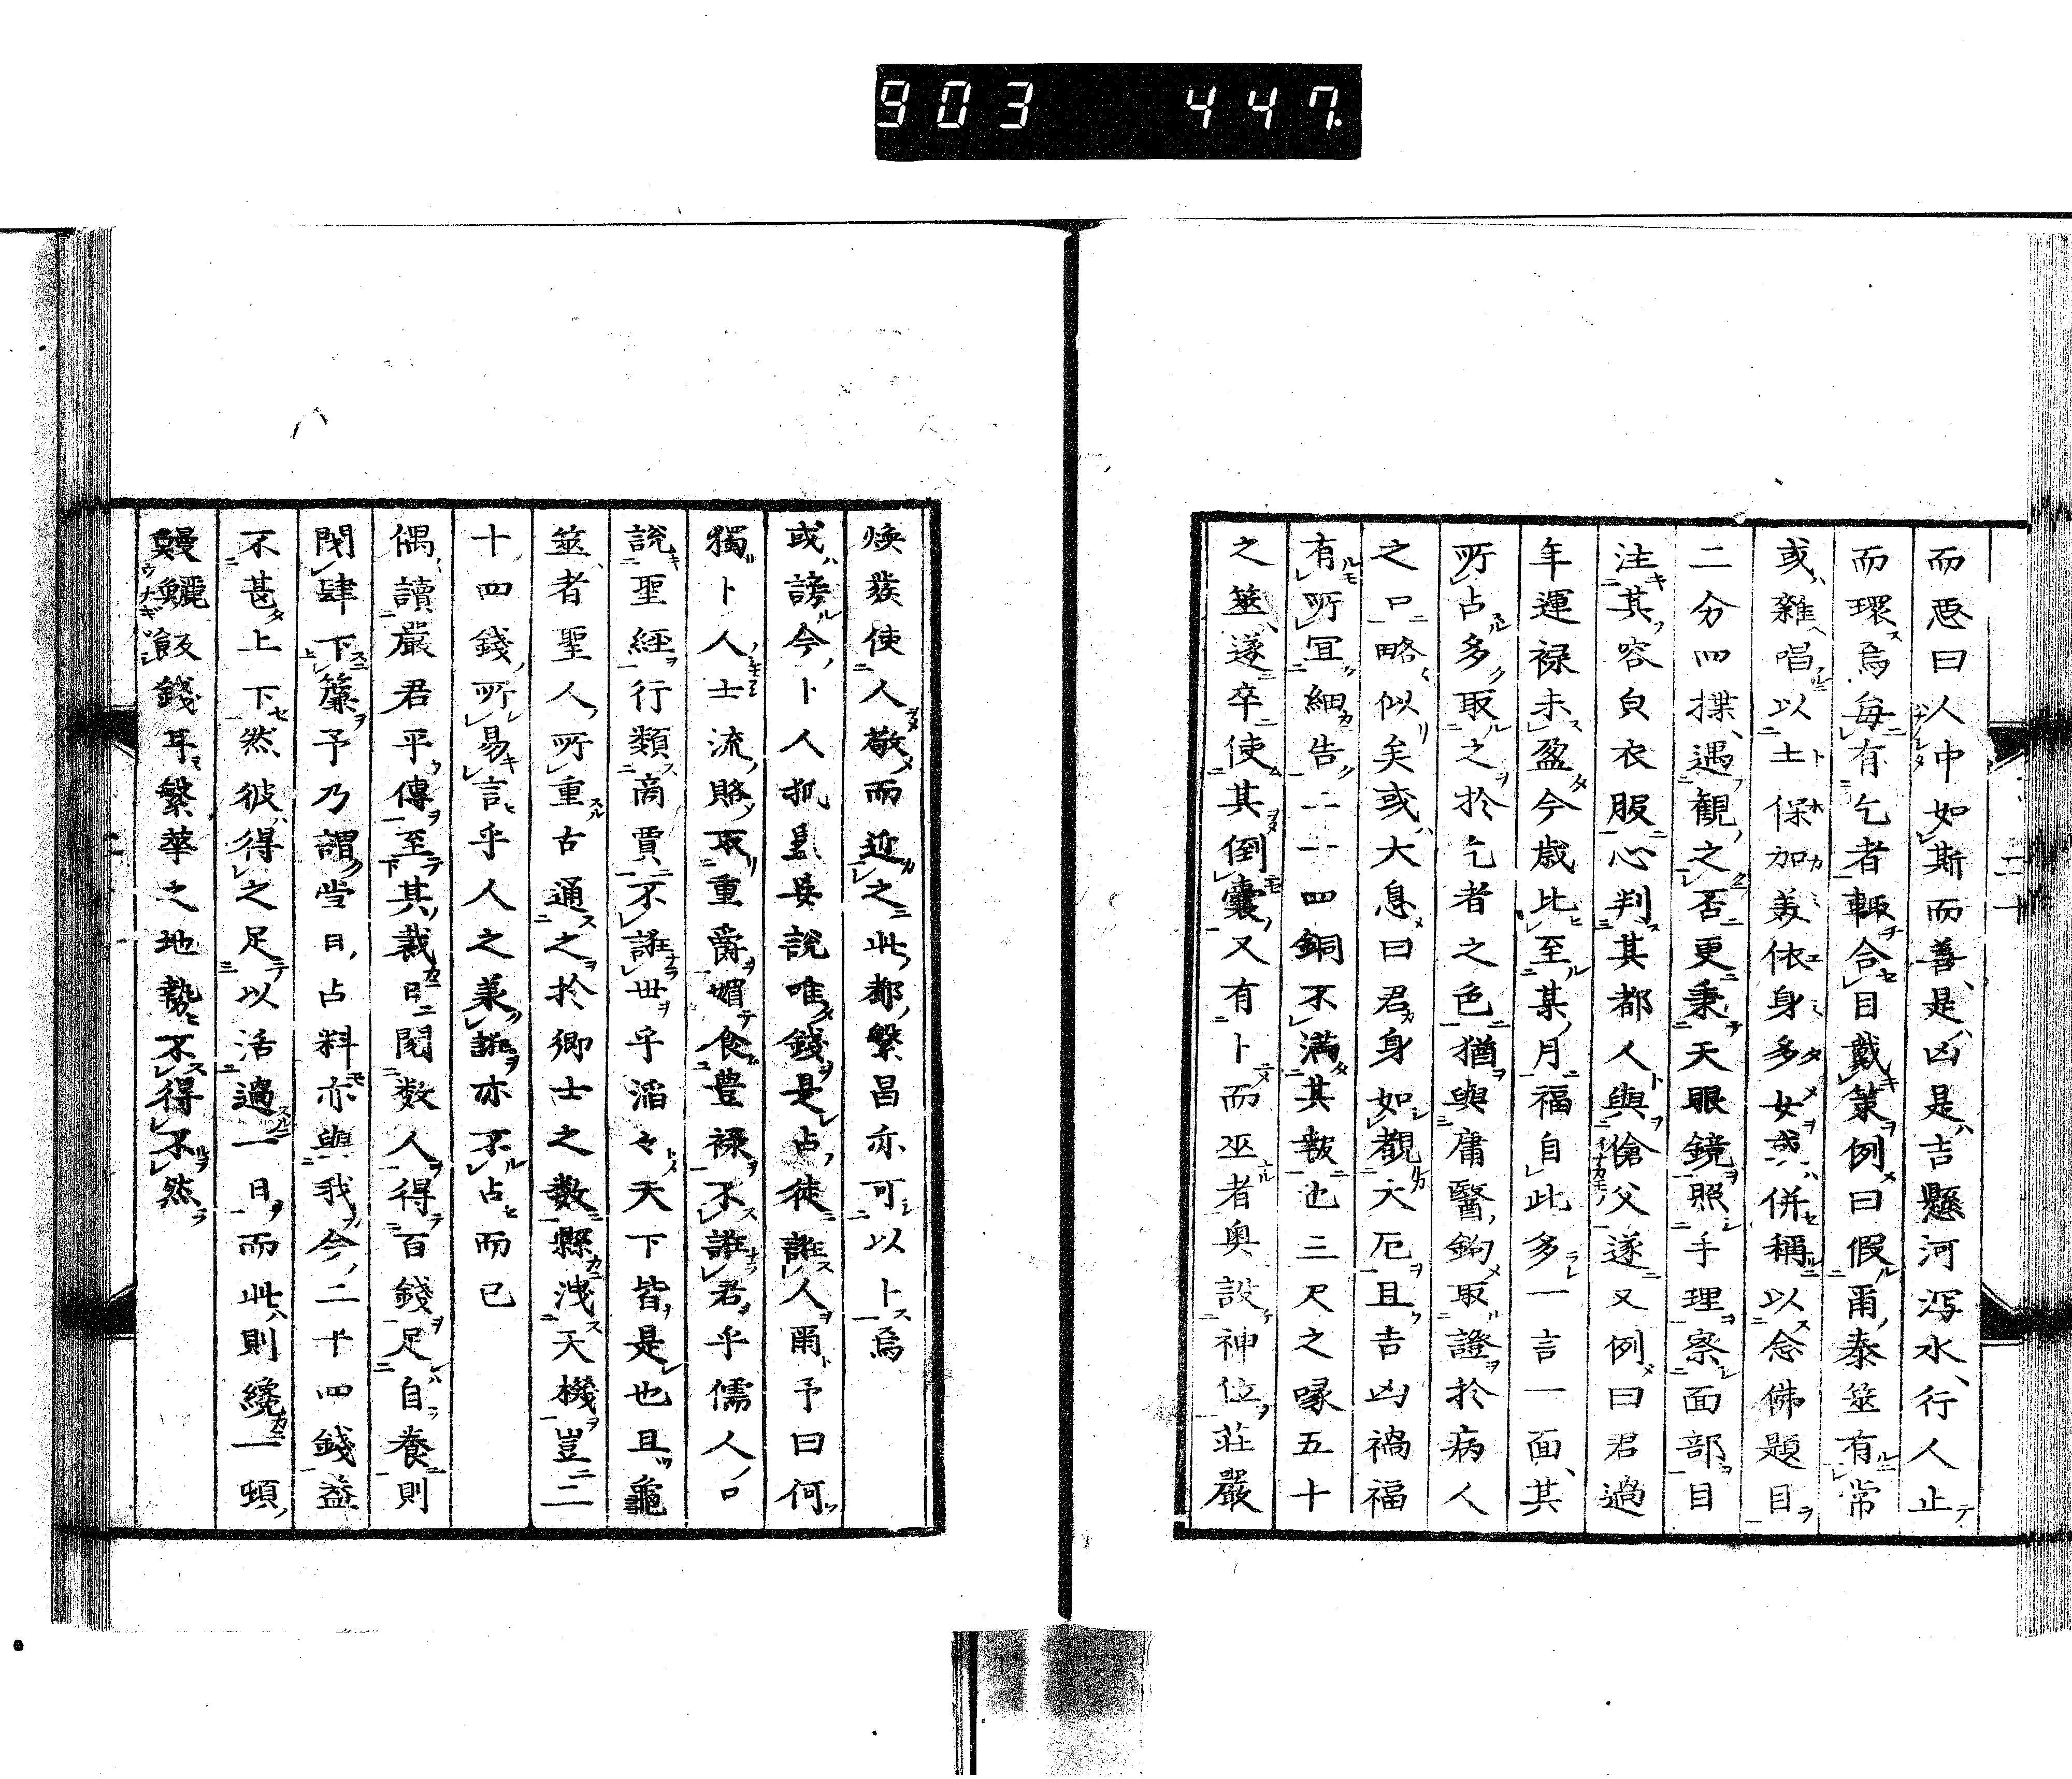 903 447
而惡曰人中如斯而善是凶是吉懸河瀉水行人止
而環焉每有乞者輙合目戴策例曰假爾泰筮有常
或雜唱以土保加美依身多女或併稱以念佛題目
二分四揲遇觀之否更秉天眼鏡照手理察面部目
注其容皃衣服心判其都人與傖父遂又例曰君過
年運祿未盈今歲比至某月福自此多一言一面其
所占多取之於乞者之色猶與庸醫鉤取證於病人
之口略似矣或大息曰君身如觀大厄且吉凶禍福
有所宜細告二十四銅不滿其報也三尺之喙五十
之筮遂卒使其倒囊又有卜而巫者奥設神位莊嚴
煥發使人敬而近之此都繁昌亦可以卜焉
或謗今卜人孤量妄說唯錢是占徒誑人爾予曰何
獨卜人士流賂取重爵媚食豊祿不誑君乎儒人口
說聖經行類商賈不誑世乎滔々天下皆是也且龜
筮者聖人所重古通之於卿士之數縣洩天機豈二
十四錢所易言乎人之兼誑亦不占而已
偶讀嚴君平傳至其裁日閱数人得百錢足自養則
閉肆下簾予乃謂當日占料亦與我今二十四錢益
不甚上下然彼得之足以活過一日而此則纔一頓
鰻鱺飯錢耳繁華之地勢不得不然